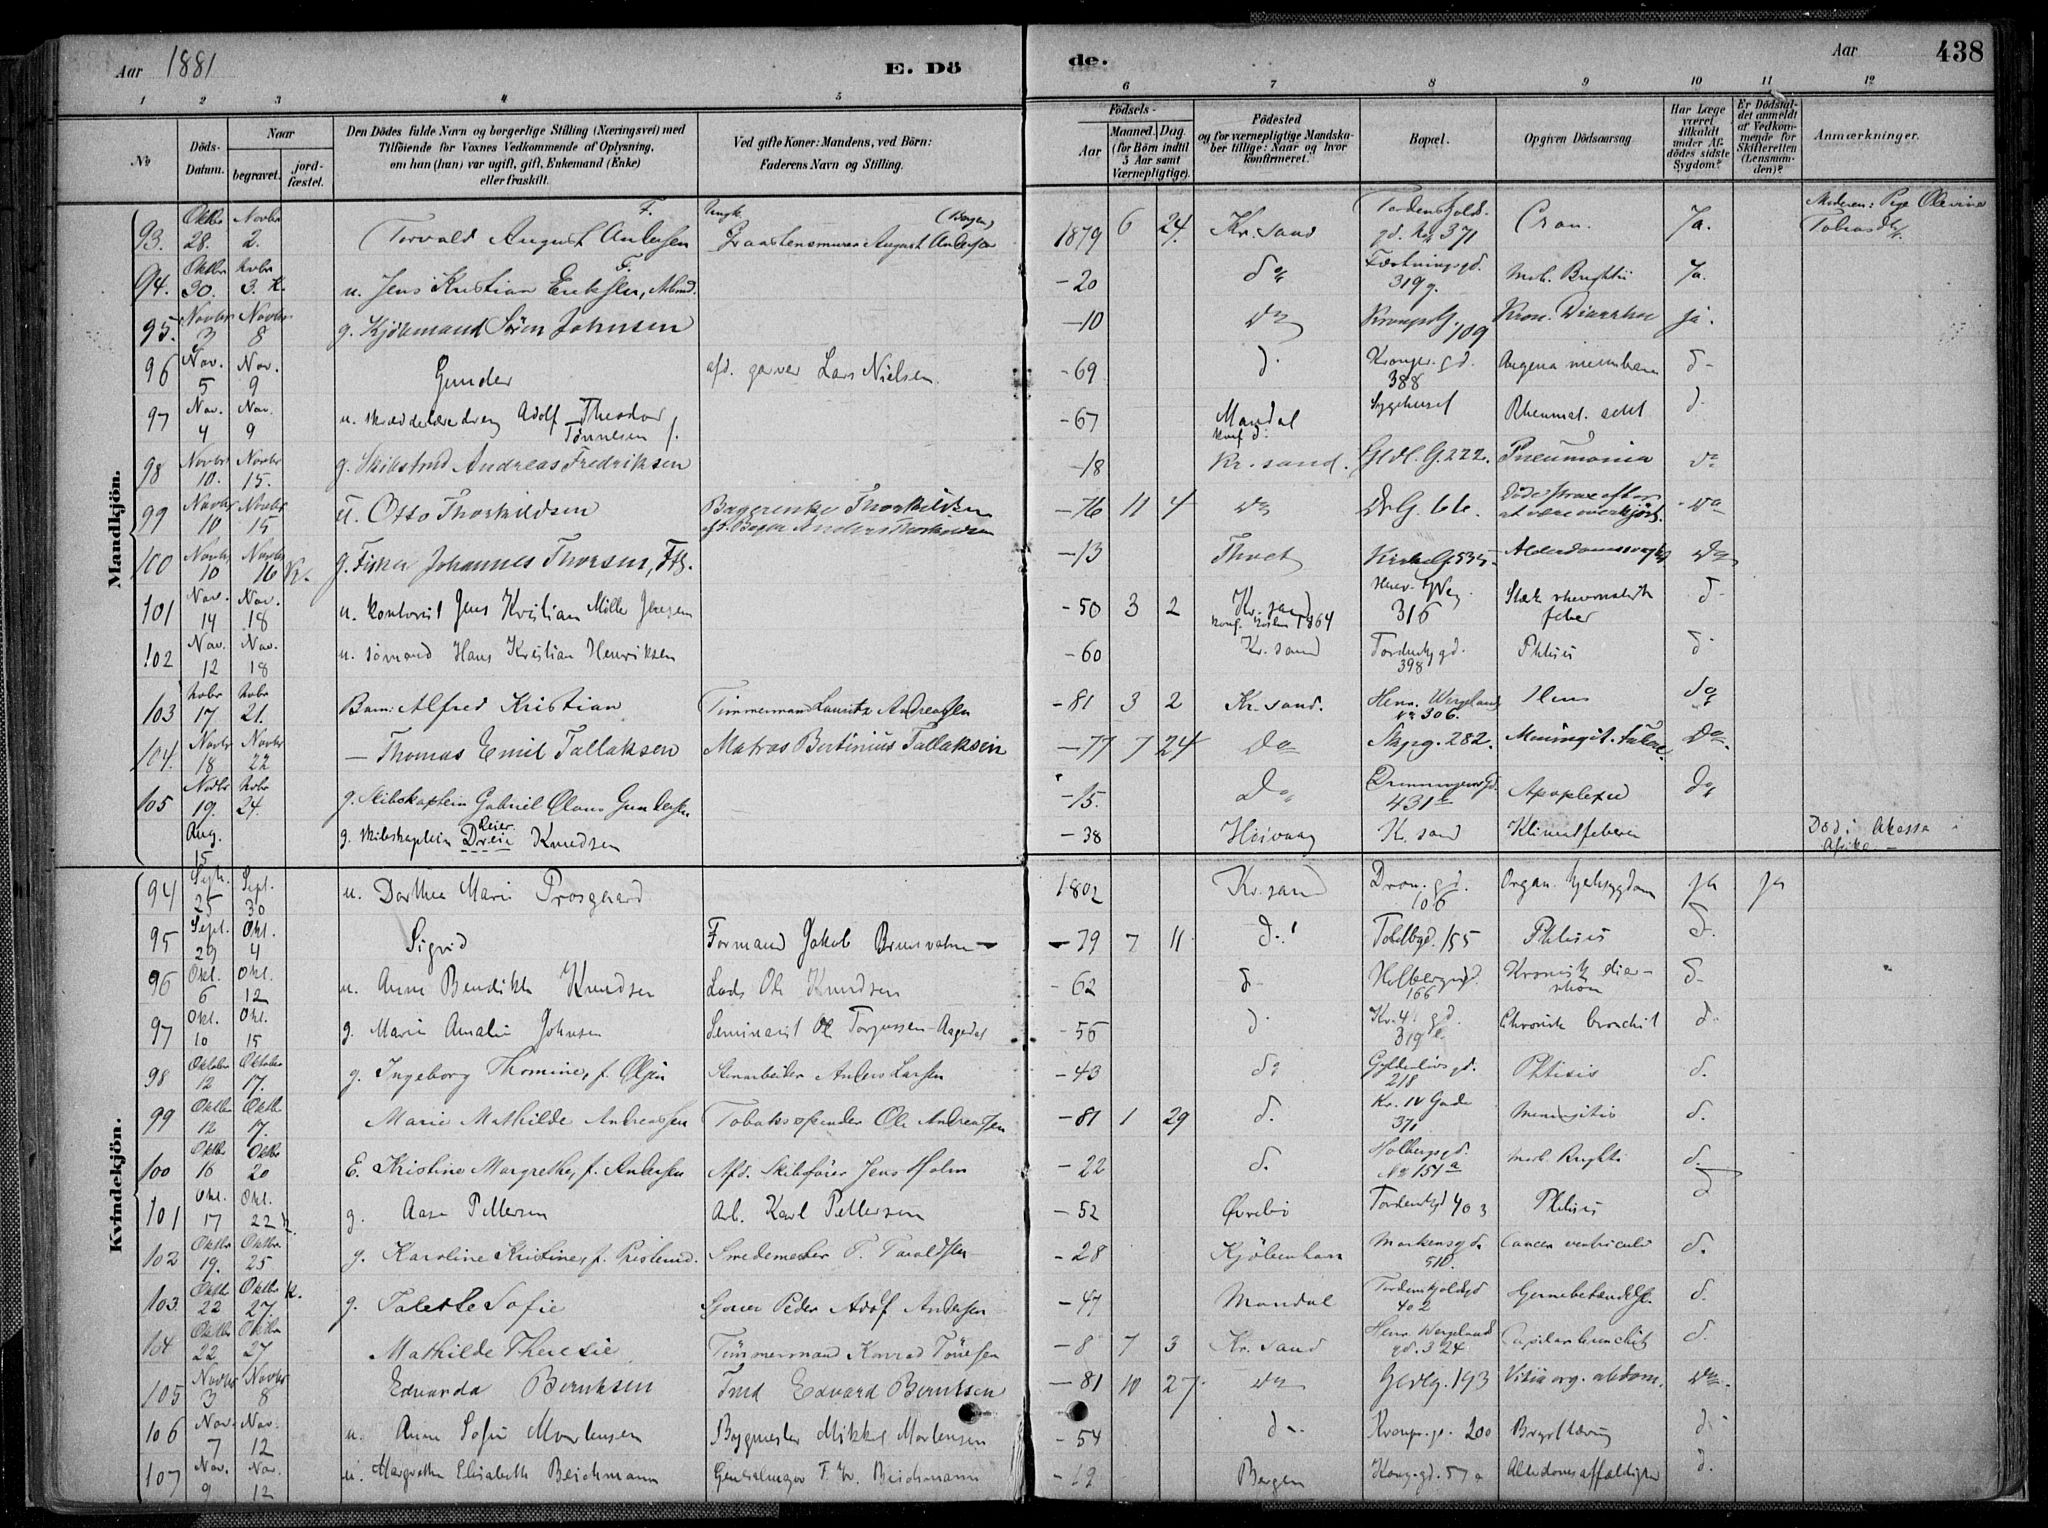 Aar 1881
E. Dö
de.
Aar
438
1 2 3 4 5 6 7 8 9 10 11 12
No
Döds-Datum.
Naar
begravet.
jord-fæstet.
Den Dödes fulde Navn og borgerlige Stilling (Næringsvei) med
Tilföiende for Voxnes Vedkommende af Oplysning,
om han (hun) var ugift, gift, Enkemand (Enke)
eller fraskilt.
Ved gifte Koner: Mandens, ved Börn:
Faderens Navn og Stilling.
Födsels-
Aar
Maaned. Dag.
(for Börn indtil
5 Aar samt
Værnepligtige).
Födested
og for værnepligtige Mandska-
ber tillige: Naar og hvor
konfirmeret.
Bopæl.
Opgiven Dödsaarsag
Har Læge
været
tilkaldt
under Af-
dödes sidste
Sygdom?
Er Dödsfal-
det anmeldt
af Vedkom-
mende for
Skifteretten
(Lensman-
den)?
Anmærkninger.
Mandkjön.
93. Oktbr 28. Novbr 2. Torvald August Andersen Ungk. August Andersen (Bergen) 1879 6 24 Kr. sand Tordenskjolds gd. 371 Croup. Ja. Moderen: Pige Olevine Tobiasd.
94. Oktbr 30. Nvbr 3. K. u. Jens Kristian Eriksen, F. Almd. -20 do Fæstningsgd. 319 g. Morb. Brightii Ja.
95. Novbr 3 Novbr 8 g. Kjöbmand Sören Johnsen -10 do 109 Kron. Diarrhoe ja.
96 Nov. 5 Nov. 9 Gunder afd. garver Lars Nielsen. -69 d. Kronpr. gd. 388 Angina membran d-
97 Nov. 4 Nov. 9 u. skrædderlæredreng Adolf Theodor Tönnesen f. -67 Mandal konf d. Sygehuset Rheumat. acut d.
98 Novbr 10. Novbr 15. g. Skibstmd Andreas Fredriksen -18 Kr. sand. Gldl. G. 222. Pneumonia do
99 Novbr 10 Novbr 15 u. Otto Thorkildsen Bagerenke Thorkildsen af d. Bager Anders Thorkildsen -76 11 4 do Dr. G. 66. Döde strax efter at være overkjört. do
100 Novbr 10 Novbr 16 K. g. Fisker Johannes Thorsen, Ftg. -13 Thvet Kirkeg. 535 Alderdomssvaghed do
101 Nov. 14 Nov. 18 u. Kontorist Jens Kristian Möller Jensen -50 3 2 Kr. sand konf. 1864 Henr. Wg. 316 Stærk rheumatisk feber d-
102 Nov. 12 Nov. 18 u. sömand Hans Kristian Henriksen -60 Kr. sand Tordenskj gd. 398 Phtisis d-
103 Nvbr 17 Nvbr 21. Barn: Alfred Kristian Tömmermand Lauritz Andreassen -81 3 2 Kr. sand. Henr. Wergelands No 306. Ilens do
104. Novbr 18 Novbr 22 — Thomas Emil Tallaksen Matros Bertinius Tallaksen -77 7 24 Do Skpg. 282. Meningit. tuberc Do.
105 Novbr 19. Nvbr 24. g. Skibskaptein Gabriel Olaus Gundersen -15. Do Dronningensgd. 431 Apoplexie do
Aug. 15 g. skibskaptein Reier Knudsen -38 Höivaag K. sand Klimatfeberen Död i Akassa i Afrika —
Kvindekjön.
94 Sept. 25 Sept. 30 u. Dorthea Marie Prosgaard 1802 Kr. sand Dron. gd. 106 Organ. hjertesygdom ja ja
95 Sept. 29 Okt. 4 Sigrid Formand Jakob Brunvatne -79 7 11 d. Toldbgd. 155 Phtisis d.
96 Okt. 6 Okt. 12 u. Anne Bendikte Knudsen Lods Ole Knudsen -62 d- Holbergsgd. 166 Kronisk diarrhöe d-
97 Okt. 10 Okt. 15 g. Marie Amalie Johnsen Seminarist Ole Torjussen-Aagedal -55 d. Kr. 4 gd. 319 Chronisk bronchit d-
98 Oktober 12 Oktober 17. g. Ingeborg Thomine, f. Olsen Stenarbeider Anders Larsen -43 do Gyldenlövsgd. 218 Phtisis d.
99 Oktbr 12 Oktbr 17. Marie Mathilde Andreassen Tobaksspinder Ole Andreassen -81 1 29 d. Kr. IV Gade 371 Meningitis d.
100 Oktbr 16 Oktbr 20 E. Kristine Margrethe, f. Andersen Afd. Skibsförer Jens Holm -22 d. Holbergsgd. No 151a Morb. Brightii d.
101 Okt. 17 Okt. 22 K. g. Aase Pettersen Arb. Karl Pettersen -52 Övrebö Tordenskgd 403 Phtisis d
102 Oktbr 19. Oktbr 25 g. Karoline Kristine, f. Smedemester T. Taraldsen -28 Kjöbenhavn Markensgd. 510. Cancer ventriculi d.
103. Oktbr 22 Oktbr 27 K. g. Talette Sofie Peder Adolf Andersen -47 Mandal Tordenskjoldsgd 402 d.
104 Oktbr 22 Oktbr 27 Mathilde Theresie Tömmermand Konrad Tönnesen -8 7 3 Kr. sand Henr. Wergelands gd. 324 Capilærbronchit d.
105 Novbr 3 Novbr 8 Edvarda Berntsen Tmd Edvard Berntsen -81 10 27 do Gldlg. 193 Vitia org. abdom. do.
106 Nov. 7 Nov. 12 u. Anne Sofie Mortensen Bygmester Mikkel Mortensen -54 d- Kronpr. gd. 200 Brysttæring d-
107 Nov. 9 Nov. 12 u. Margrethe Elisabeth Beichmann Generalmajor Beichmann -19 Bergen Kongsgd. 57a d.